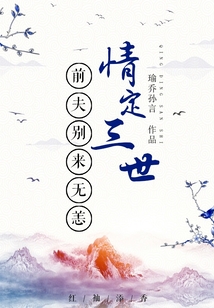 情定三世
QING DING SAN SHI
瑜乔孙言 作品
前夫别来无恙
红/袖/添/香